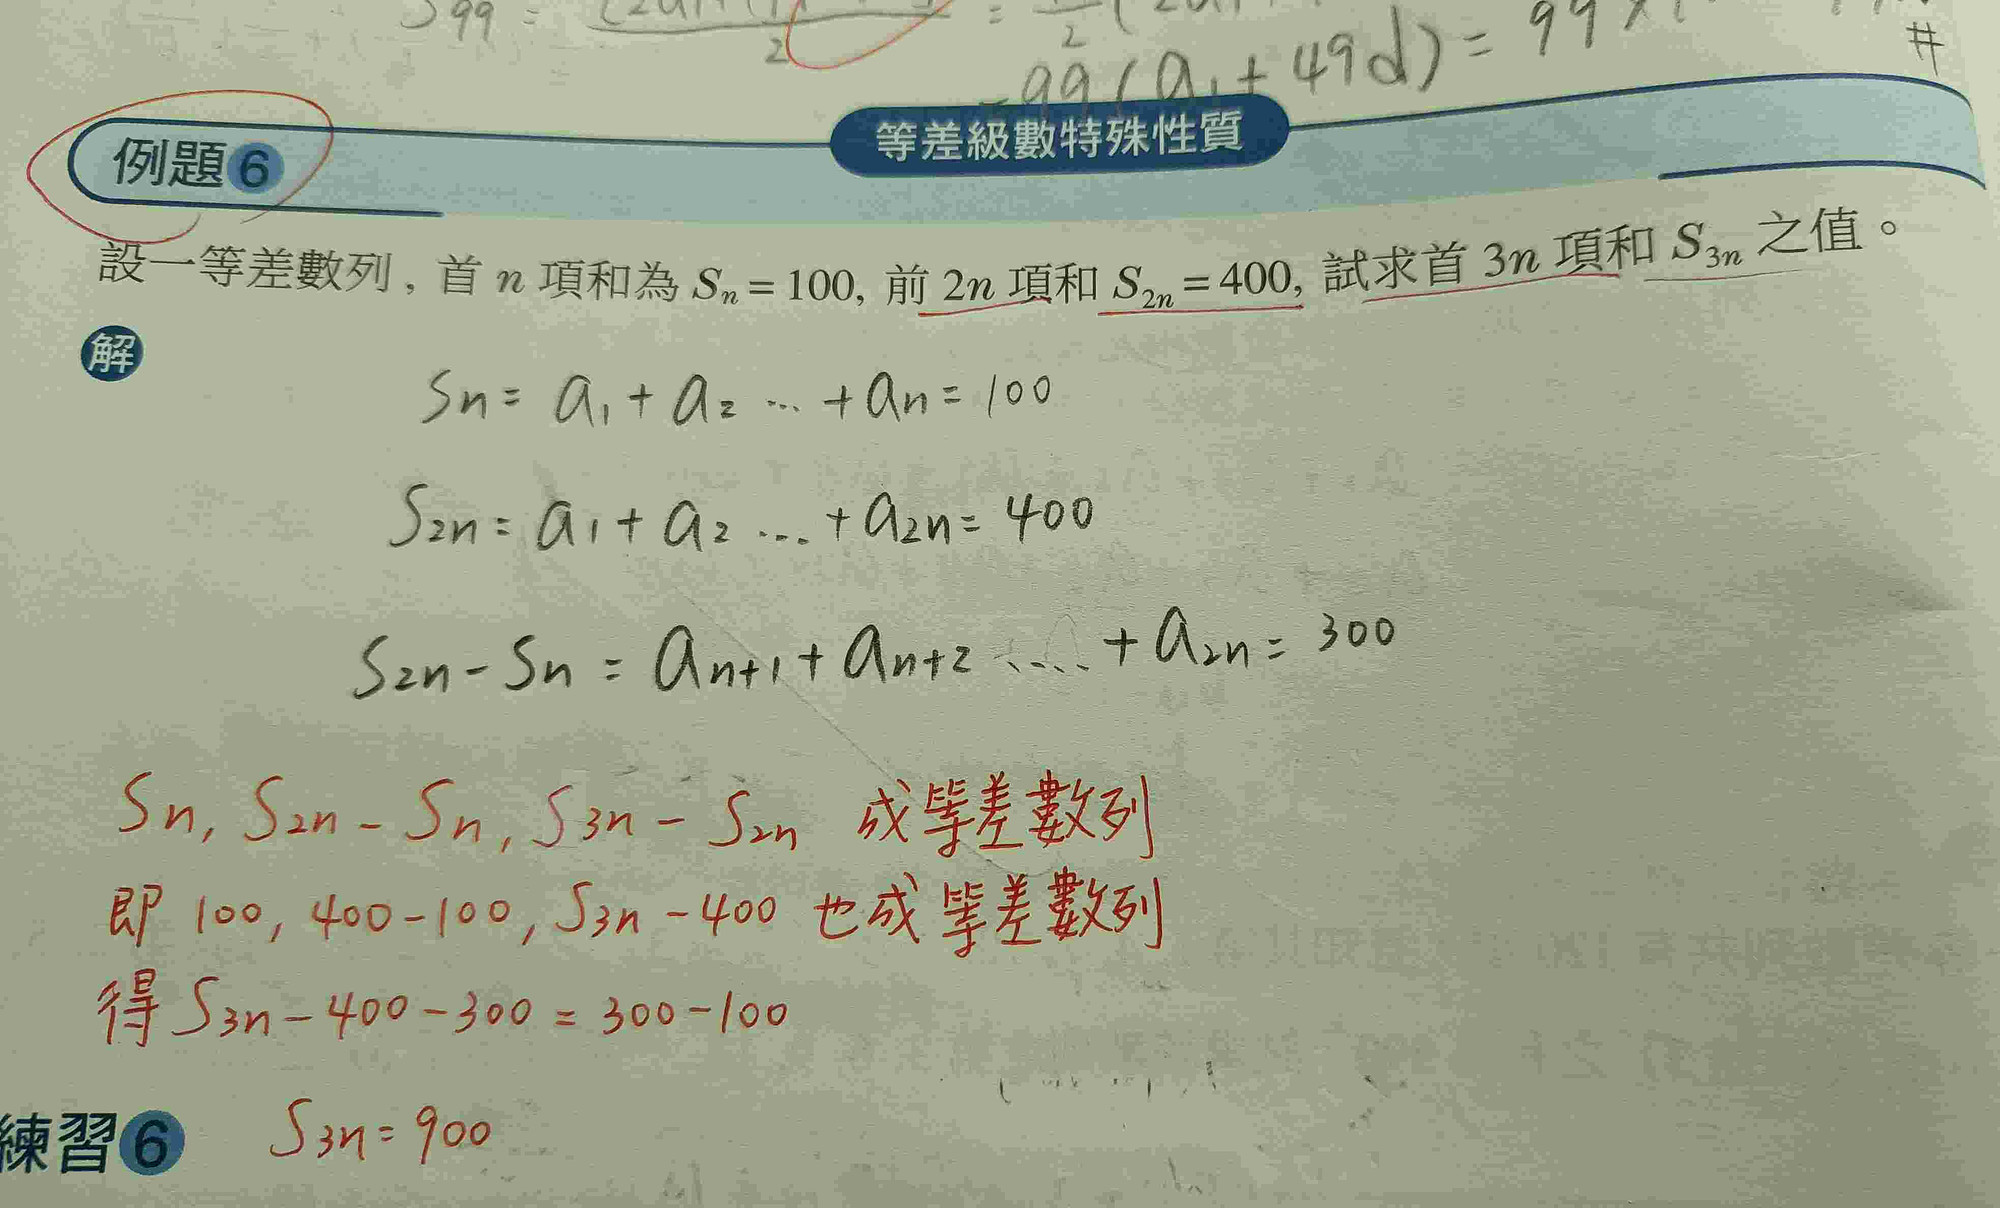 S99 =
= 99(a1 + 49d) = 99
#
例題 6
等差級數特殊性質
設一等差數列, 首 n 項和為 Sn = 100, 前 2n 項和 S2n = 400, 試求首 3n 項和 S3n 之值。
解
Sn = a1 + a2 … + an = 100
S2n = a1 + a2 … + a2n = 400
S2n - Sn = an+1 + an+2 …. + a2n = 300
Sn, S2n - Sn, S3n - S2n 成等差數列
即 100, 400-100, S3n - 400 也成等差數列
得 S3n - 400 - 300 = 300 - 100
練習 6
S3n = 900